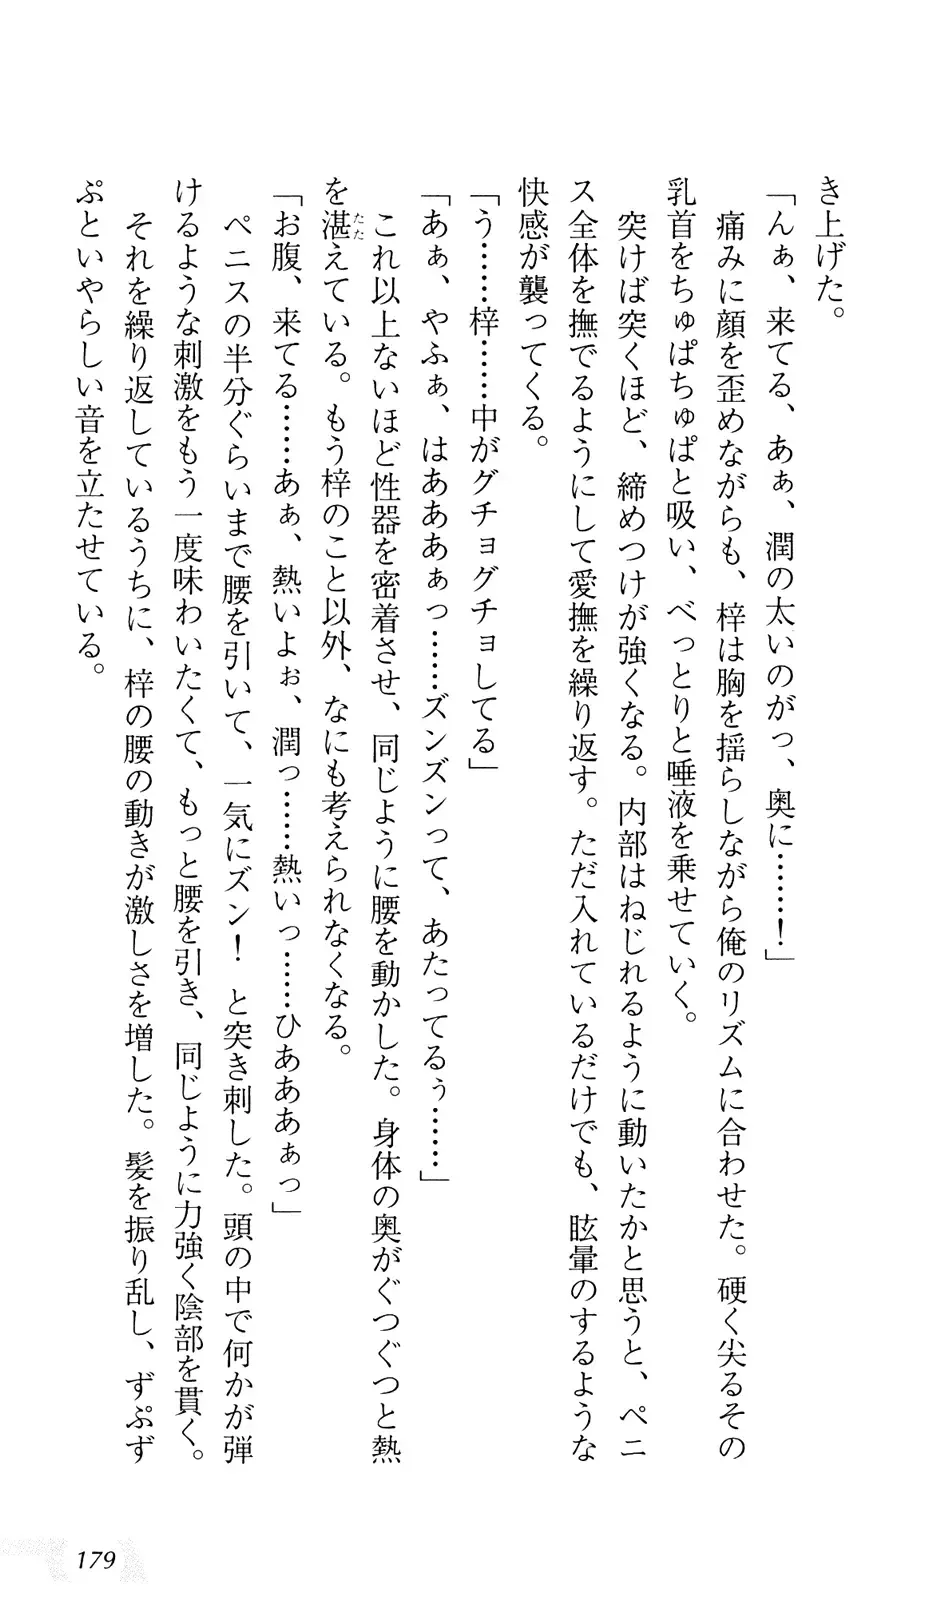 き上げた。
「んぁ、来てる、あぁ、潤の太いのがっ、奥に……！」
痛みに顔を歪めながらも、梓は胸を揺らしながら俺のリズムに合わせた。硬く尖るその
乳首をちゅぱちゅぱと吸い、べっとりと唾液を乗せていく。
突けば突くほど、締めつけが強くなる。内部はねじれるように動いたかと思うと、ペニ
ス全体を撫でるようにして愛撫を繰り返す。ただ入れているだけでも、眩暈のするような
快感が襲ってくる。
「う……梓……中がグチョグチョしてる」
「あぁ、やふぁ、はあああぁっ……ズンズンって、あたってるぅ……」
これ以上ないほど性器を密着させ、同じように腰を動かした。身体の奥がぐつぐつと熱
を湛えている。もう梓のこと以外、なにも考えられなくなる。
「お腹、来てる……あぁ、熱いよぉ、潤っ……熱いっ……ひあああぁっ」
ペニスの半分ぐらいまで腰を引いて、一気にズン！　と突き刺した。頭の中で何かが弾
けるような刺激をもう一度味わいたくて、もっと腰を引き、同じように力強く陰部を貫く。
それを繰り返しているうちに、梓の腰の動きが激しさを増した。髪を振り乱し、ずぷず
ぷといやらしい音を立たせている。
179